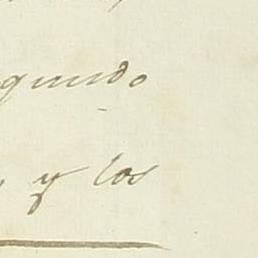 quindo
y los